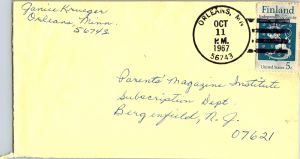 Janice Krueger
Orleans, Minn.
56743
ORLEANS, MN
OCT
11
P.M.
1967
56743
Finland
5c
United States
Parents' Magazine Institute
Subscription Dept.
Bergenfield, N. J.
07621